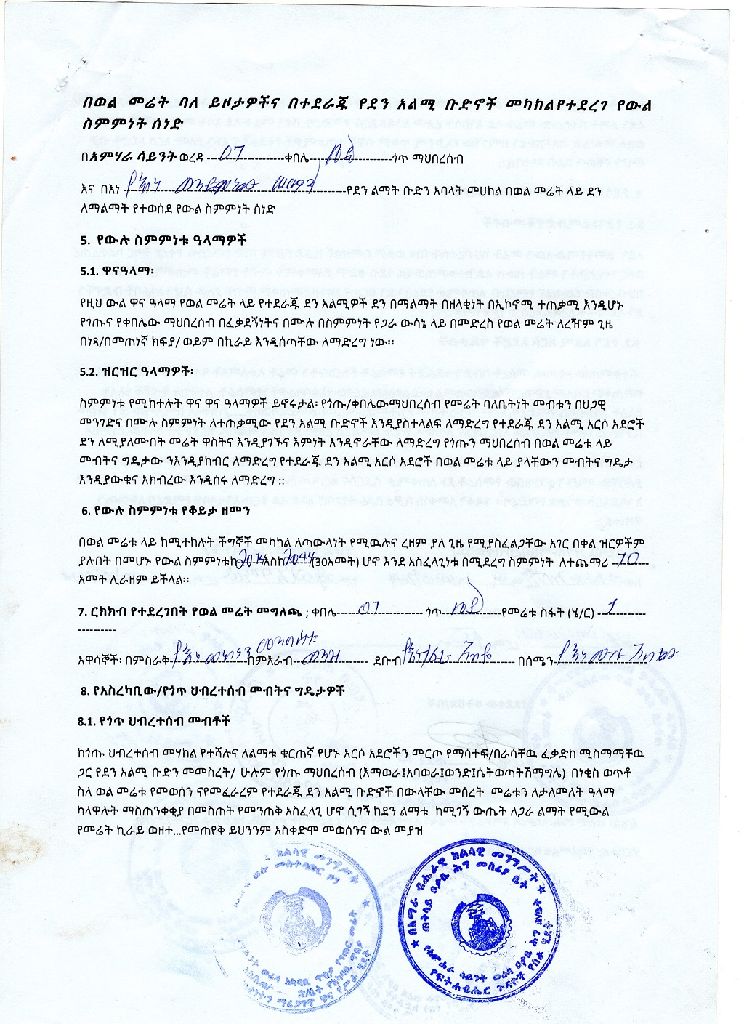 በወል መሬት ባለ ይዞታዎችና በተደራጁ የደን አልሚ ቡድኖች መካከልየተደረገ የውል
ስምምነት ሰነድ
በአምሃራ ሳይንት ወረዳ 07 ቀበሌ ጎጥ ማህበረሰብ
እና በእነ የደን ልማት ቡድን አባላት መሀከል በወል መሬት ላይ ደን
ለማልማት የተወሰደ የውል ስምምነት ሰነድ
5. የውሉ ስምምነቱ ዓላማዎች
5.1. ዋናዓላማ፡
የዚህ ውል ዋና ዓላማ የወል መሬት ላይ የተደራጁ ደን አልሚዎች ደን በማልማት በዘላቂነት በኢኮኖሚ ተጠቃሚ እንዲሆኑ
የጎጡና የቀበሌው ማህበረሰብ በፈቃደኝነትና በሙሉ በስምምነት የጋራ ውሳኔ ላይ በመድረስ የወል መሬት ለረዥም ጊዜ
በነጻ/በመጠነኛ ክፍያ/ ወይም በኪራይ እንዲሰጣቸው ለማድረግ ነው።
5.2. ዝርዝር ዓላማዎች፡
ስምምነቱ የሚከተሉት ዋና ዋና ዓላማዎች ይኖሩታል፡ የጎጡ/ቀበሌውማህበረሰብ የመሬት ባለቤትነት መብቱን በህጋዊ
መንገድና በሙሉ ስምምነት ለተጠቃሚው የደን አልሚ ቡድኖች እንዲያስተላልፍ ለማድረግ የተደራጁ ደን አልሚ አርሶ አደሮች
ደን ለሚያለሙበት መሬት ዋስትና እንዲያገኙና እምነት እንዲኖራቸው ለማድረግ የጎጡን ማህበረሰብ በወል መሬቱ ላይ
መብትና ግዴታው ንእንዲያከብር ለማድረግ የተደራጁ ደን አልሚ አርሶ አደሮች በወል መሬቱ ላይ ያላቸውን መብትና ግዴታ
እንዲያውቁና አክብረው እንዲሰሩ ለማድረግ ::
6. የውሉ ስምምነቱ የቆይታ ዘመን
በወል መሬቱ ላይ ከሚተከሉት ችግኞች መካከል ለጣውላነት የሚዉሉና ረዘም ያለ ጊዜ የሚያስፈልጋቸው አገር በቀል ዝርዎችም
ያሉበት በመሆኑ የውል ስምምነቱከ እስከ (30አመት) ሆኖ እንደ አስፈላጊነቱ በሚደረግ ስምምነት ለተጨማሪ 10
አመት ሊራዘም ይችላል።
7. ርክክብ የተደረገበት የወል መሬት መግለጫ ; ቀበሌ 07 ጎጥ የመሬቱ ስፋት (ሄ/ር) 1
አዋሳኞች፡ በምስራቅ በምእራብ መንገድ ደቡብ በሰሜን
8. የአስረካቢው/የጎጥ ህብረተሰብ መብትና ግዴታዎች
8.1. የጎጥ ህብረተሰብ መብቶች
ከጎጡ ህብረተሰብ መሃከል የተሻሉና ለልማቱ ቁርጠኛ የሆኑ አርሶ አደሮችን መርጦ የማሳተፍ/በራሳቸዉ ፈቃድከ ሚስማማቸዉ
ጋር የደን አልሚ ቡድን መመስረት/ ሁሉም የጎጡ ማህበረሰብ (እማወራ፤አባወራ፤ወንድ፤ሴትወጣትሽማግሌ) በነቂስ ወጥቶ
ስለ ወል መሬቱ የመወሰን ናየመፈራረም የተደራጁ ደን አልሚ ቡድኖች በውላቸው መሰረት መሬቱን ለታለመለት ዓላማ
ካላዋሉት ማስጠንቀቂያ በመስጠት የመንጠቅ አስፈላጊ ሆኖ ሲገኝ ከደን ልማቱ ከሚገኝ ውጤት ለጋራ ልማት የሚውል
የመሬት ኪራይ ወዘተ...የመጠየቅ ይህንንም አስቀድሞ መወሰንና ውል መያዝ